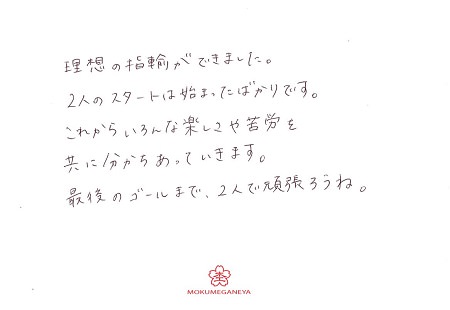 理想の指輪ができました。
2人のスタートは始まったばかりです。
これからいろんな楽しさや苦労を
共に分かちあっていきます。
最後のゴールまで、2人で頑張ろうね。
MOKUMEGANEYA